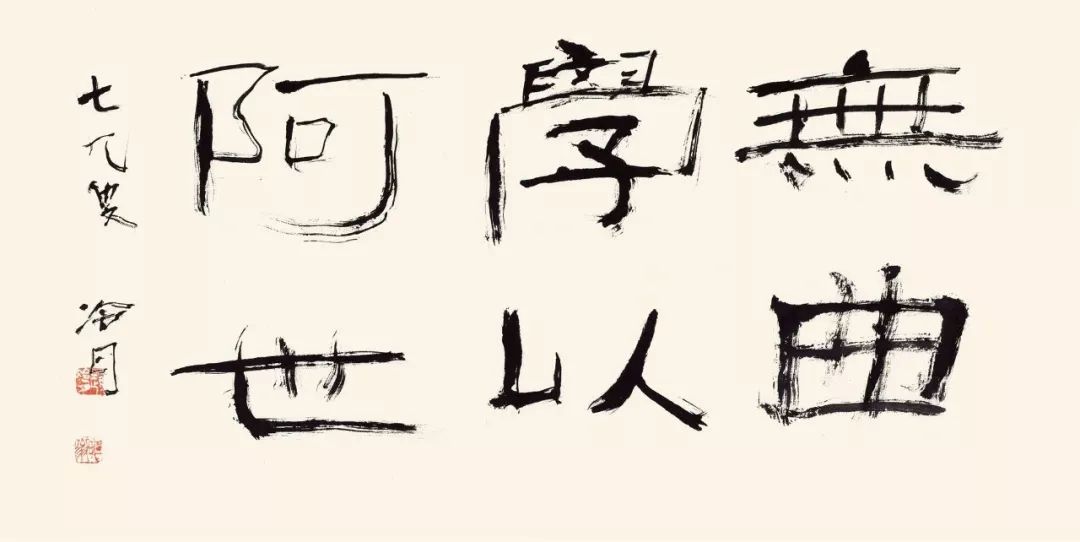 無曲
學以
阿世
七九叟 冷月